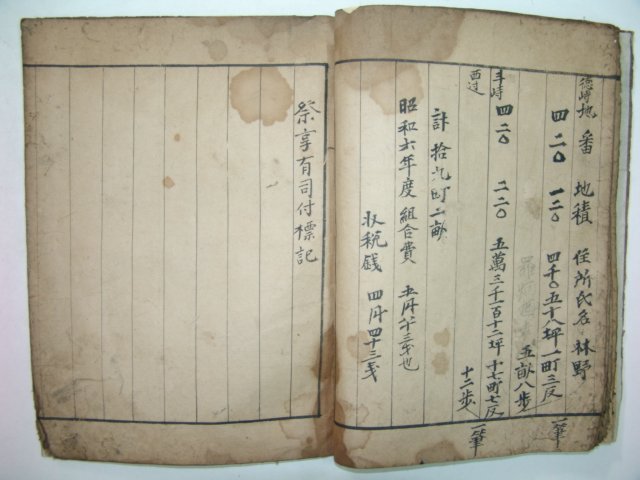 地番 地積 住所氏名 林野
四二〇 一二〇 四千〇五十八坪 一町三反 一筆
五畝八歩
四二〇 二二〇 五萬三千一百十二坪 十七町七反 一筆
西边 十二歩
計 拾九町二畝
昭和六年度組合費 五円六十三戋也
収税銭 四円四十三戋
祭享有司付標記